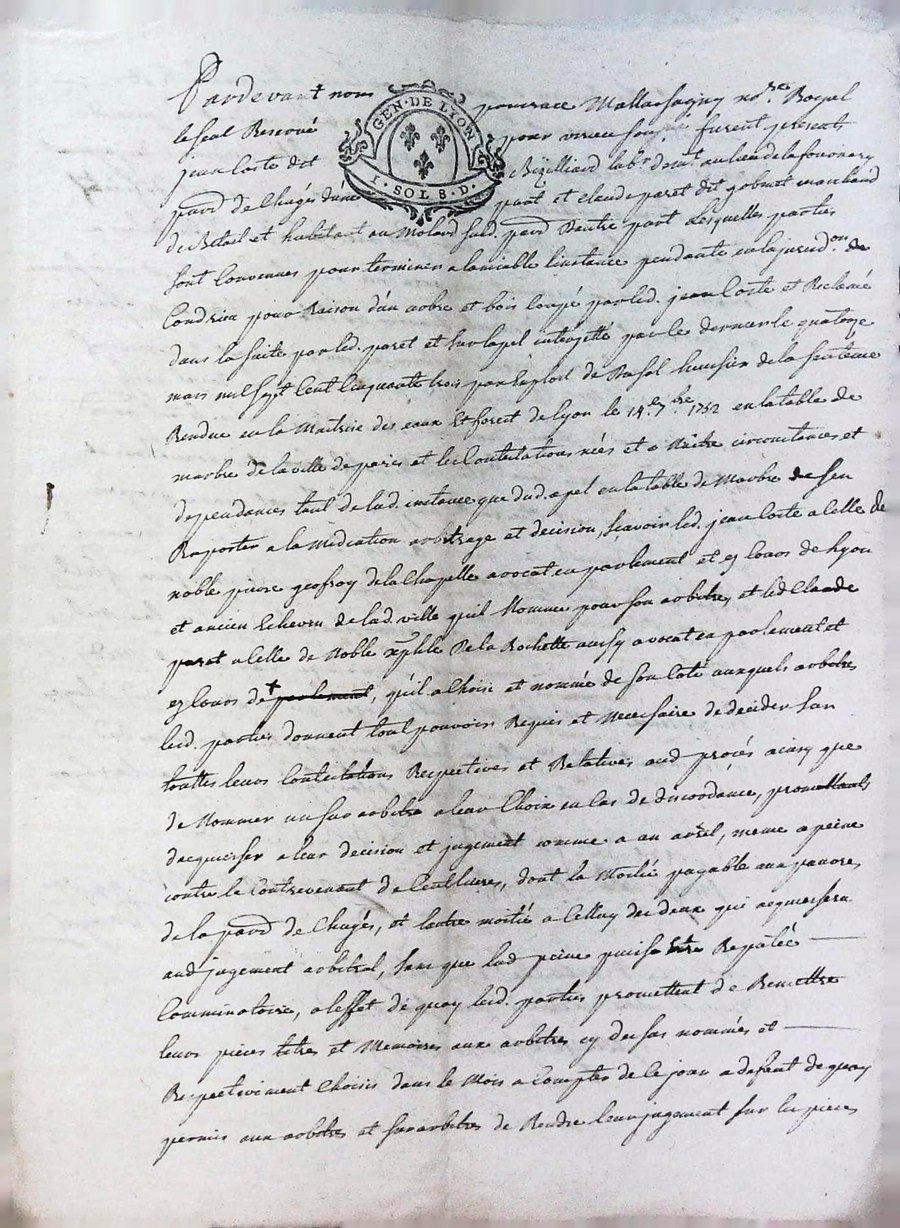 Pardevant nous ponsrace Mallassagny no.re Royal
GEN · DE LYON
I · SOL 8 · D.
le seul Reservé pour virieu soussigné furent presents
jean Coste dit Bizelliard lab.r dem.t au lieu de la
paro.e de Chagés d'une part et claude paret dit gobinet marchand
de Betail et habitant au Molard sud. paro.e Dautre part Lesquelles parties
sont Convenues pour terminer alamiable linstance pendante en la jurisd.on de
Condrieu pour Raison d'un arbre et bois Coupé par led. jean Coste et Reclamé
dans la suite par led. paret et sur lapel interjetté par le dernier le quatorze
mars mil sept Cent Cinquante trois par Exploit de Basal huissier de la sentence
Rendue en la Maitrise des eaux Et forest de lyon le 14.e 7.bre 1752 en la table de
marbre de la ville de paris et les Contestations nées et a Naitre circonstances et
dependances tant de lad. instance que dud. apel en la table de Marbre de s'en
Raporter a la Mediation arbitrage et decision, scavoir led. jean Coste a Celle de
noble pierre geofroy de la Chapelle avocat en parlement et ez Cours de Lyon
et ancien Echevin de lad. ville qu'il Nomme pour son arbitre, et led Claude
paret a Celle de Noble xphle De la Rochette aussy avocat en parlement et
ez Cours de + parlement, qu'il a Choisi et nommé de son Coté auxquels arbitres
lesd. parties donnent tout pouvoir Requis et Necessaire de decider sur
touttes leurs Contestations Respectives et Relatives aud procés ainsy que
de Nommer un sur arbitre a leur Choix en Cas de discordance, promettants
dacquiesser a leur decision et jugement comme a un arrêt, meme a peine
contre le Contrevenant de Cent livres, dont la Moitié payable aux pauvres
de la paro.e de Chagés, et lautre moitié a Celluy des deux qui acquiessera
aud jugement arbitral, sans que lad peine puisse Etre Reputée
Comminatoire, a leffet de quoy lesd. parties promettent de Remettre
leurs pieces titres et Memoires aux arbitres cy dessus nommés et
Respectivement Choisis dans le Mois a compter de Ce jour a defaut de quoy
permis aux arbitres et sur arbitres de Rendre leur jugement sur les pieces